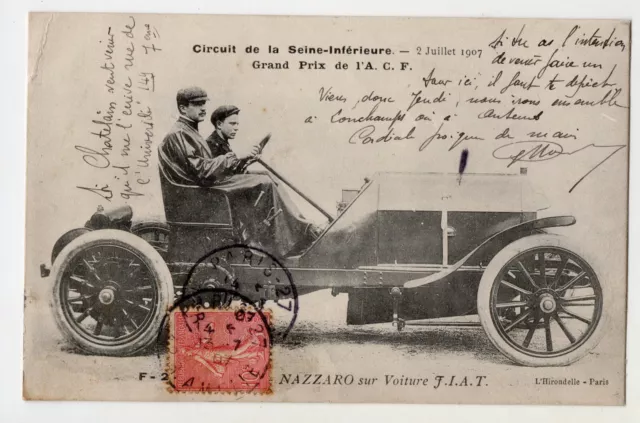 Circuit de la Seine-Inférieure. — 2 Juillet 1907
Grand Prix de l'A. C. F.
Si tu as l'intention
de venir faire un
saut ici, il faut te dépêcher
Viens donc Jeudi, nous irons ensemble
à Longchamps ou à Auteuil
Cordiale poignée de main
Si Chatelain veut venir
qu'il me l'écrive rue de
l'Université 149
PARIS
27
F-2
NAZZARO sur Voiture F.I.A.T.
L'Hirondelle - Paris